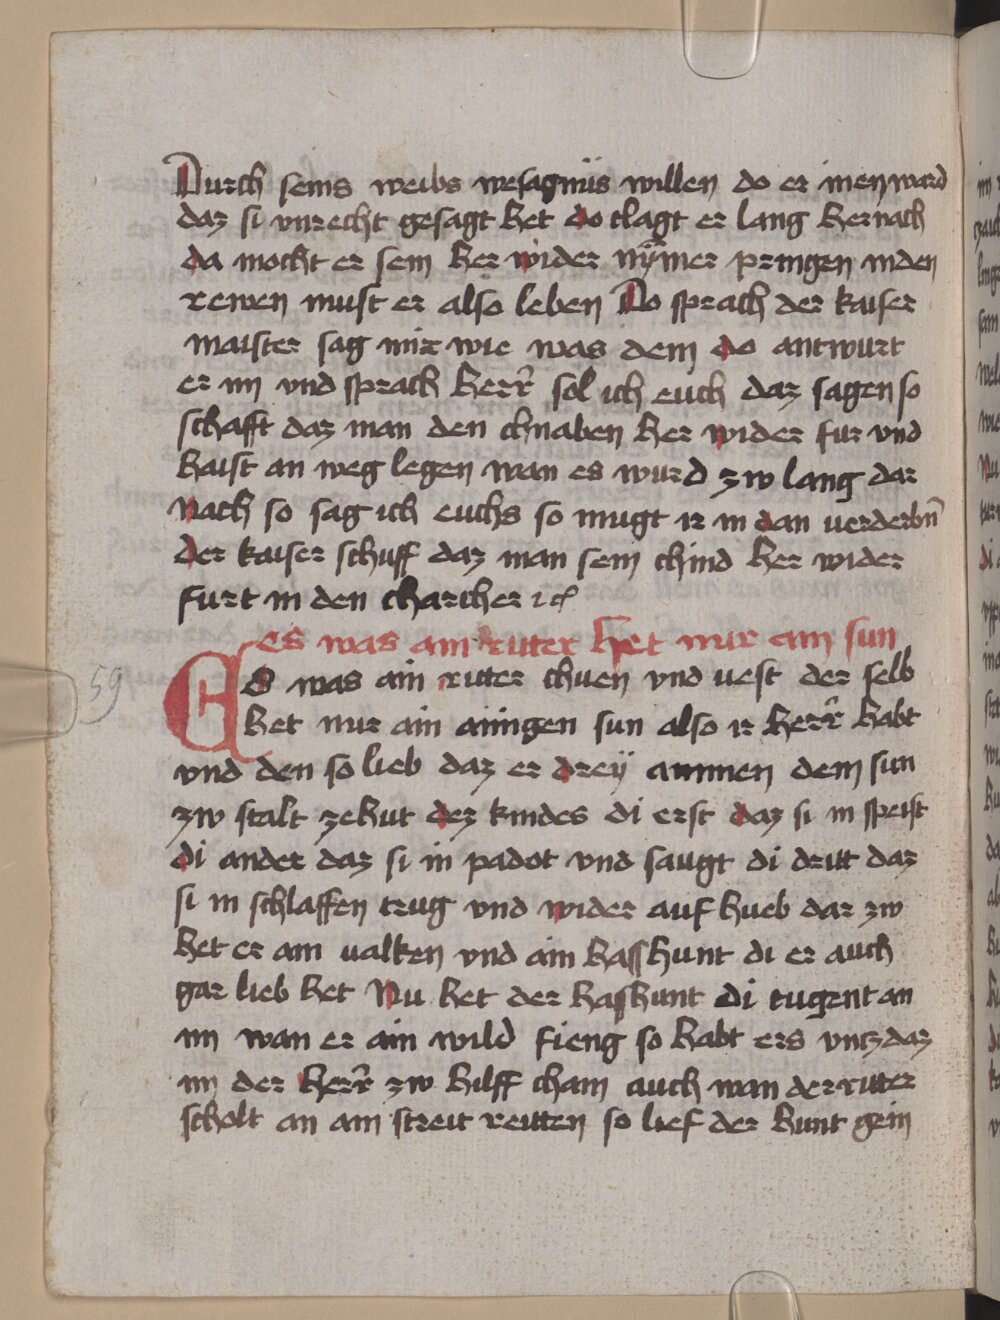 Durch seins weibs wesagnüs willen do er inen ward
daz si vnrecht gesagt het do clagt er lang hernach
da mocht er sein her wider nÿmer pringen in den
rewen must er also leben Do sprach der kaiser
maister sag mir wie was dem do antwurt
er im vnd sprach herr sol ich euch daz sagen so
schafft daz man den chnaben her wider fur vnd
haist an weg legen wan es wurd zw lang dar
nach so sag ich euchs so mugt ir in dan uerderbn
der kaiser schuff daz man sein chind her wider
furt in den charcher
es was ain ritter het nur ain sun
Es was ain ritter chuen vnd uest der selb
het nur ain ainigen sun also ir herr habt
vnd den so lieb daz er dreÿ ammen dem sun
zw stalt ze hut dez kindes di erst daz si in speist
di ander daz si in padot vnd saugt di dritt daz
si in schlaffen trug vnd wider auf hueb dar zw
het er ain ualken vnd ain hasshunt di er auch
gar lieb het Nu het der hasshunt di tugent an
im wan er ain wild fieng so habt ers vntz daz
im der herr zw hilff cham auch wan der ritter
scholt an ain streit reitten so lief der hunt gein
59